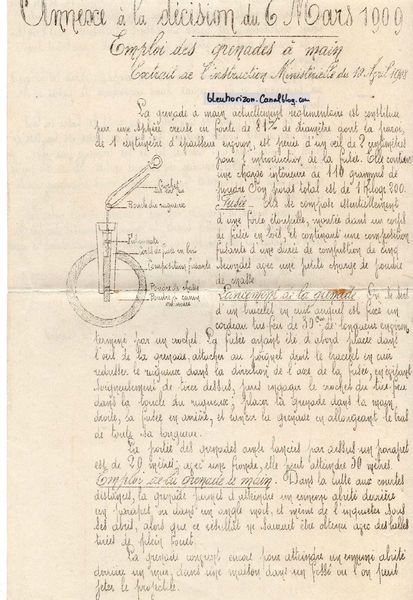 Annexe à la décision du 6 Mars 1909
Emploi des grenades à main
Extrait de l'instruction Ministérielle du 10 Avril 1908
bleuhorizon.Canalblog.com
La grenade à main actuellement réglementaire est constituée
par une sphère creuse en fonte de 81% de diamètre dont la paroi,
de 1 centimètre d'épaisseur environ, est percée d'un œil de 2 centimètres
pour l'introduction de la fusée. Elle contient
une charge intérieure de 110 grammes de
poudre Son poids total est de 1 Kilogr 200.
Fusée. Elle se compose essentiellement
d'une forte étoupille, montée dans un corps
de fusée en bois, et contenant une composition
fusante d'une durée de combustion de cinq
secondes avec une petite charge de poudre
de chasse
Boucle du rugueux
Fulminate
Corps de fusée en bois
Composition fusante
Poudre de chasse
Poudre à canon
Lancement de la grenade On se sert
d'un bracelet en cuir auquel est fixée un
cordeau tire feu de 30cm de longueur environ
terminé par un crochet. La fusée ayant été d'abord placée dans
l'œil de la grenade, attacher au poignet droit le bracelet en cuir
redresser le rugueux dans la direction de l'axe de la fusée, en évitant
soigneusement de tirer dessus, puis engager le crochet du tire-feu
dans la boucle du rugueux; placer la grenade dans la main
droite, la fusée en arrière, et lancer la grenade en allongeant le bras
de toute sa longueur.
La portée des grenades ainsi lancées par dessus un parapet
est de 20 mètres; avec une fronde, elle peut atteindre 50 mètres.
Emploi de la grenade à main. Dans la lutte aux courtes
distances, la grenade permet d'atteindre un ennemi abrité derrière
un parapet ou dans un angle mort, et même de l'inquiéter sous
ses abris, alors que ce résultat ne saurait être obtenu avec des balles
tirées de plein fouet.
La grenade convient encore pour atteindre un ennemi abrité
derrière un mur, dans une maison dans un fossé où l'on peut
jeter le projectile.